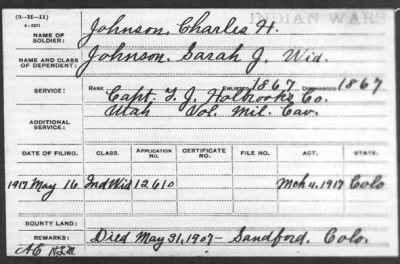 (3-II-11)
INDIAN WARS
NAME OF SOLDIER: Johnson, Charles H.
NAME AND CLASS OF DEPENDENT: Johnson, Sarah J. Wid.
SERVICE: RANK ENLISTED 1867 DISCHARGED 1867
Capt. T. J. Holbrooks Co.
ADDITIONAL SERVICE: Utah Vol. Mil. Cav.
DATE OF FILING. CLASS. APPLICATION No. CERTIFICATE No. FILE NO. ACT. STATE.
1917 May 16. Ind Wid 12610 Mch 4, 1917 Colo
BOUNTY LAND:
REMARKS: Died May 31, 1907 - Sandford, Colo.